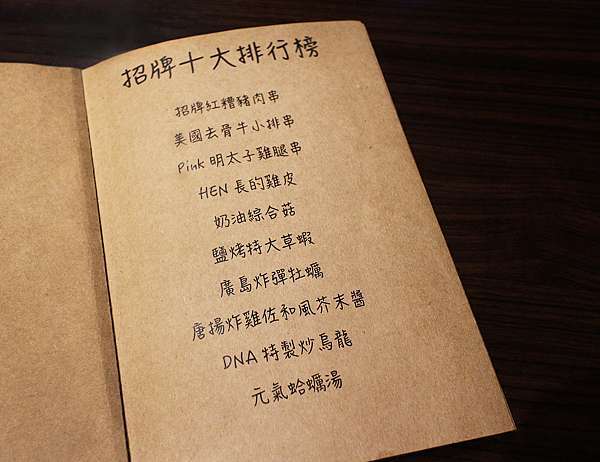 招牌十大排行榜
招牌紅糟豬肉串
美國去骨牛小排串
Pink 明太子雞腿串
HEN 長的雞皮
奶油綜合菇
鹽烤特大草蝦
廣島炸彈牡蠣
唐揚炸雞佐和風芥末醬
DNA 特製炒烏龍
元氣蛤蠣湯